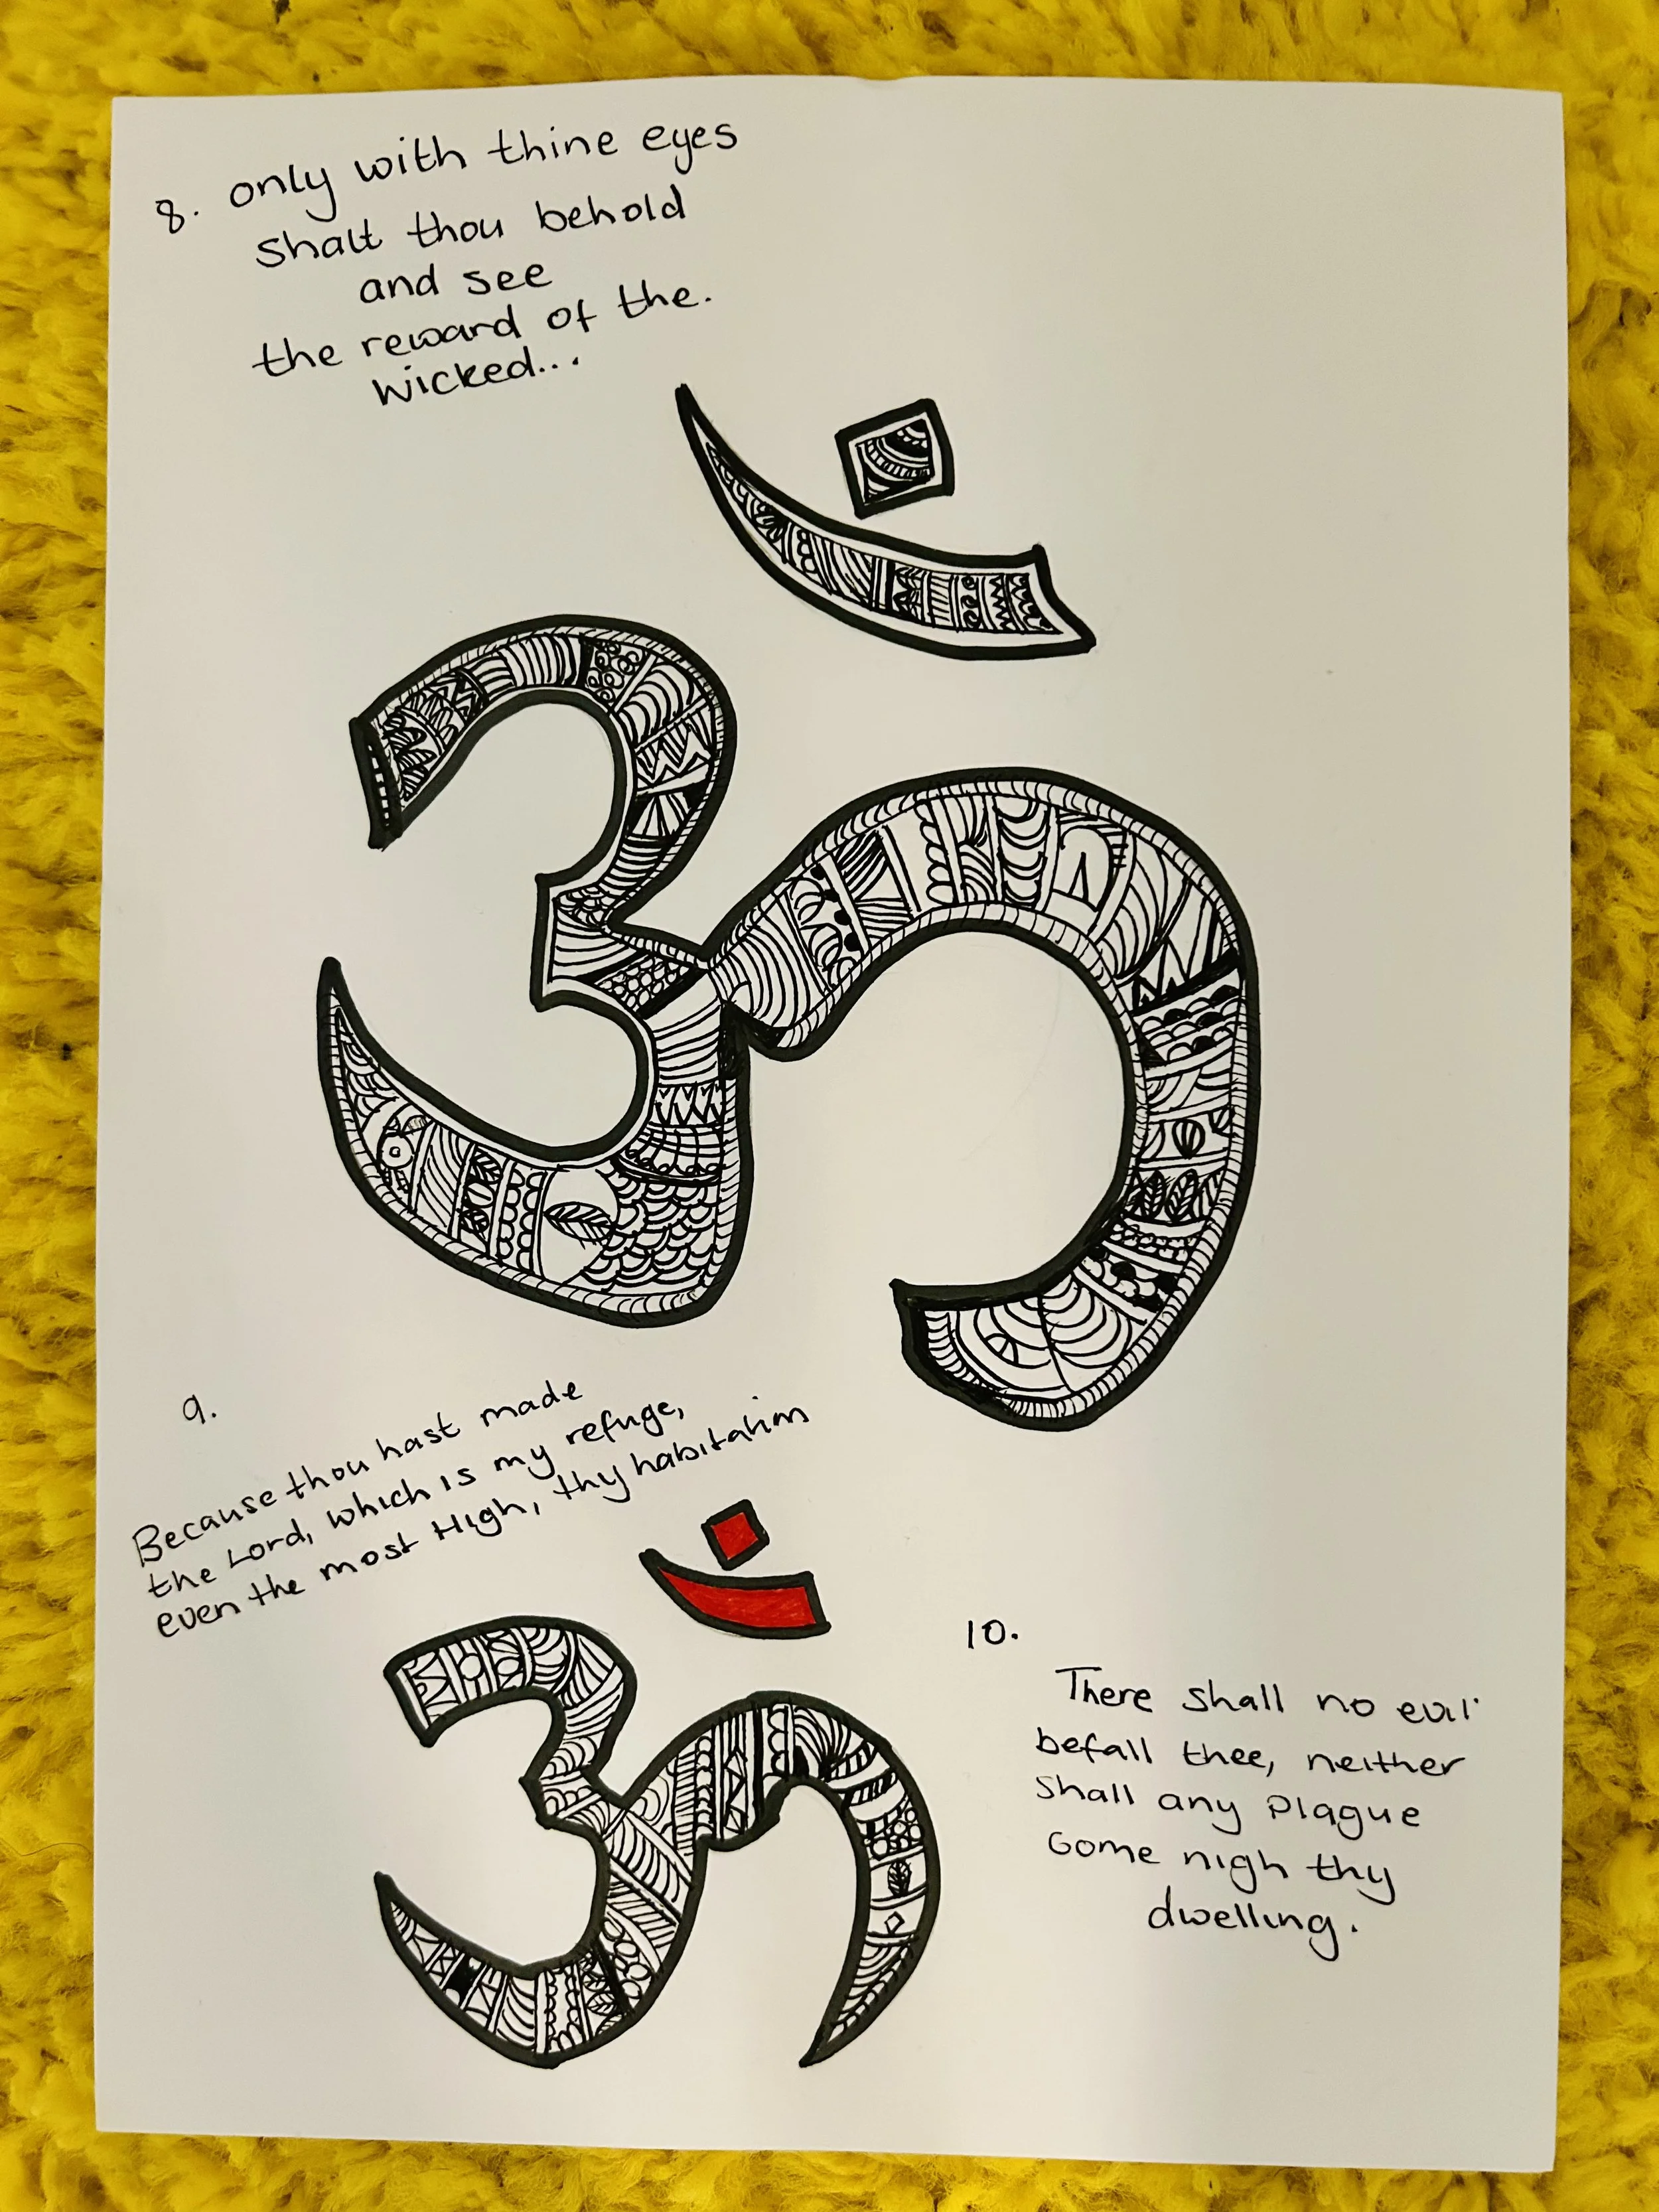 8. only with thine eyes
shalt thou behold
and see
the reward of the.
wicked...
ॐ
9.
Because thou hast made
the Lord, which is my refuge,
even the most High, thy habitation
ॐ
10.
There shall no evil
befall thee, neither
shall any plague
come nigh thy
dwelling.